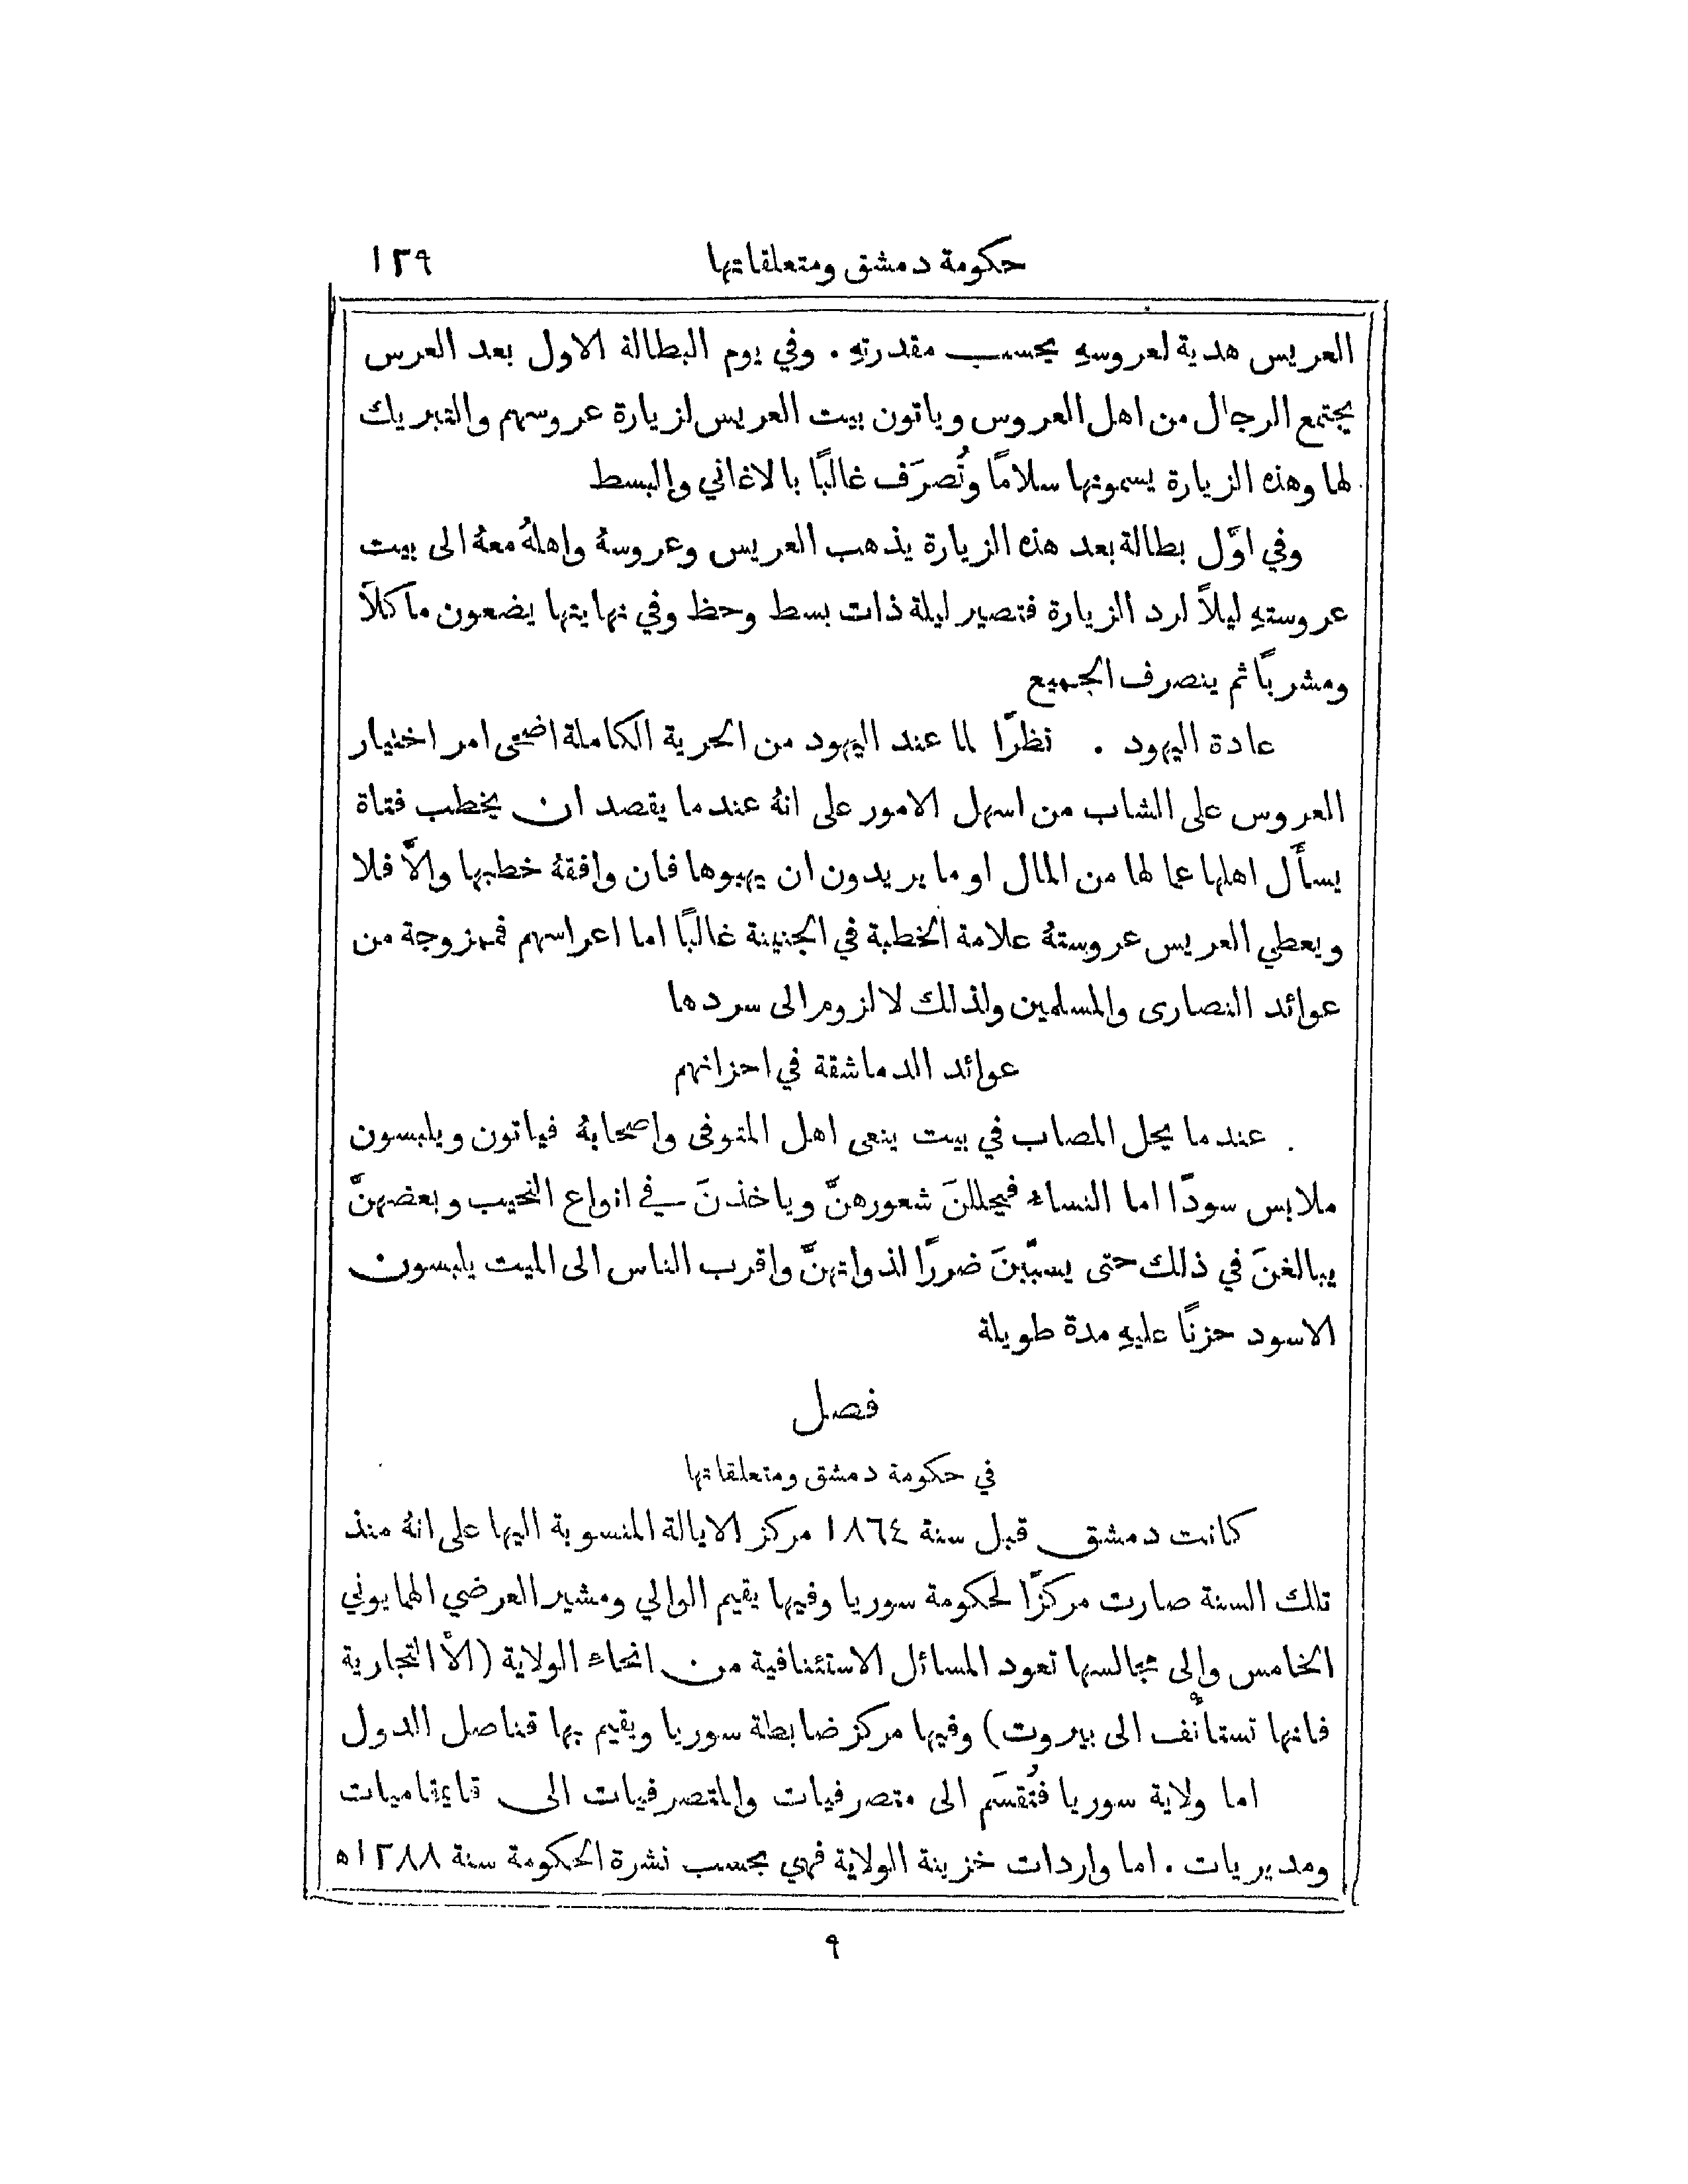 حكومة دمشق ومتعلقاتها ١٢٩
العريس هدية لعروسهِ بحسب مقدرتهِ . وفي يوم البطالة الاول بعد العرس
يجتمع الرجال من اهل العروس وياتون بيت العريس لزيارة عروسهم والتبريك
لها وهذه الزيارة يسمونها سلامًا وتُصرَف غالبًا بالاغاني والبسط
وفي اوّل بطالة بعد هذه الزيارة يذهب العريس وعروسهُ واهلهُ معهُ الى بيت
عروستهِ ليلاً لرد الزيارة فتصير ليلة ذات بسط وحظ وفي نهايتها يضعون ماكلاً
ومشربًا ثم ينصرف الجميع
عادة اليهود . نظرًا لما عند اليهود من الحرية الكاملة اضحى امر اختيار
العروس على الشاب من اسهل الامور على انهُ عندما يقصد ان يخطب فتاة
يسأَل اهلها عما لها من المال او ما يريدون ان يهبوها فان وافقهُ خطبها والاَّ فلا
ويعطي العريس عروستهُ علامة الخطبة في الجنينة غالبًا اما اعراسهم فممزوجة من
عوائد النصارى والمسلمين ولذلك لا لزوم الى سردها
عوائد الدماشقة في احزانهم
عندما يحل المصاب في بيت ينعى اهل المتوفى واصحابهُ فياتون ويلبسون
ملابس سودًا اما النساء فيحللنَ شعورهنَّ وياخذنَ في انواع النحيب وبعضهنَّ
يبالغنَ في ذلك حتى يسبّبنَ ضررًا لذواتهنَّ واقرب الناس الى الميت يلبسون
الاسود حزنًا عليهِ مدة طويلة
فصل
في حكومة دمشق ومتعلقاتها
كانت دمشق قبل سنة ١٨٦٤ مركز الايالة المنسوبة اليها على انهُ منذ
تلك السنة صارت مركزًا لحكومة سوريا وفيها يقيم الوالي ومشير العرضي الهمايوني
الخامس والى مجالسها تعود المسائل الاستئنافية من انحاء الولاية (الاَّ التجارية
فانها تستأنف الى بيروت) وفيها مركز ضابطة سوريا ويقيم بها قناصل الدول
اما ولاية سوريا فتُقسَم الى متصرفيات والمتصرفيات الى قايمقاميات
ومديريات . اما واردات خزينة الولاية فهي بحسب نشرة الحكومة سنة ١٢٨٨ه
٩